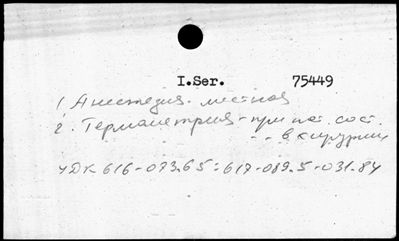 I.Ser. 75449
1) Анестезия - местная
2. Термометрия - при пат. сост.
- - в хирургии
УДК 616-073.65:617-089.5-031.84